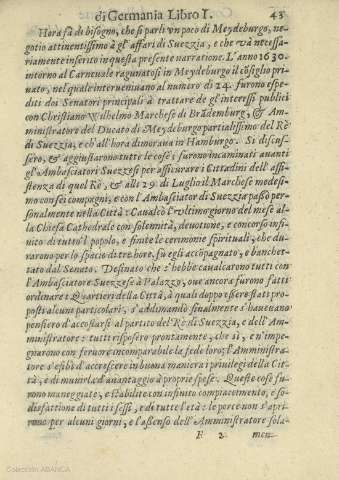 di Germania Libro I. 43
Hora fà di bisogno, che si parli vn poco di Meydeburgo, ne-
gotio attinentissimo à gl'affari di Suezzia, e che và necessa-
riamente inserito in questa presente narratione. L'anno 1630.
intorno al Carneuale ragunatosi in Meydeburgo il cõsiglio pri-
uato, nel quale interueniuano al numero di 24. furono espe-
diti doi Senatori principali à trattare de gl'interessi publici
con Christiano VVilhelmo Marchese di Brãdemburg, & Am-
ministratore del Ducato di Meydeburgo partialissimo del Rè
di Suezzia, e ch'all'hora dimoraua in Hamburgo. Si discus-
sero, & aggiustarono tutte le cose; furono incaminati auanti
gl'Ambasciatori Suezzesi per assicurare i Cittadini dell'assi-
stenza di quel Rè, & alli 29. di Luglio il Marchese medesi-
mo con sei compagni, e con l'Ambasciator di Suezzia passò per-
sonalmente nella Città: Caualcò l'vltimo giorno del mese al-
la Chiesa Cathedrale con solennità, deuotione, e concorso infi-
nito di tutto'l popolo, e finite le cerimonie spirituali, che du-
rarono per lo spacio di tre hore, fù egli accompagnato, e banchet-
tato dal Senato. Desinato che s'hebbe caualcarono tutti con
l'Ambasciatore Suezzese à Palazzo, oue ancora furono fatti
ordinare i Quartieri della Città, à quali doppo essere stati pro-
posti alcune particolari, s'addimandò finalmente s'haueuano
pensiero d'accostarsi al partito del Rè di Suezzia, e dell'Am-
ministratore: tutti risposero prontamente, che sì, e n'impe-
gnarono con feruore incomparabile la fede loro; l'Amministra-
tore s'esibì d'accrescere in buona maniera i priuilegi della Cit-
tà, e di munirla d'auantaggio à proprie spese. Queste cose fu-
rono maneggiate, e stabilite con infinito compiacimento, e so-
disfattione di tutti i sessi, e di tutte l'età: le porte non s'apri-
rono per alcuni giorni, e l'assenso dell'Amministratore sola-
F 2 men-
Colección ABANCA